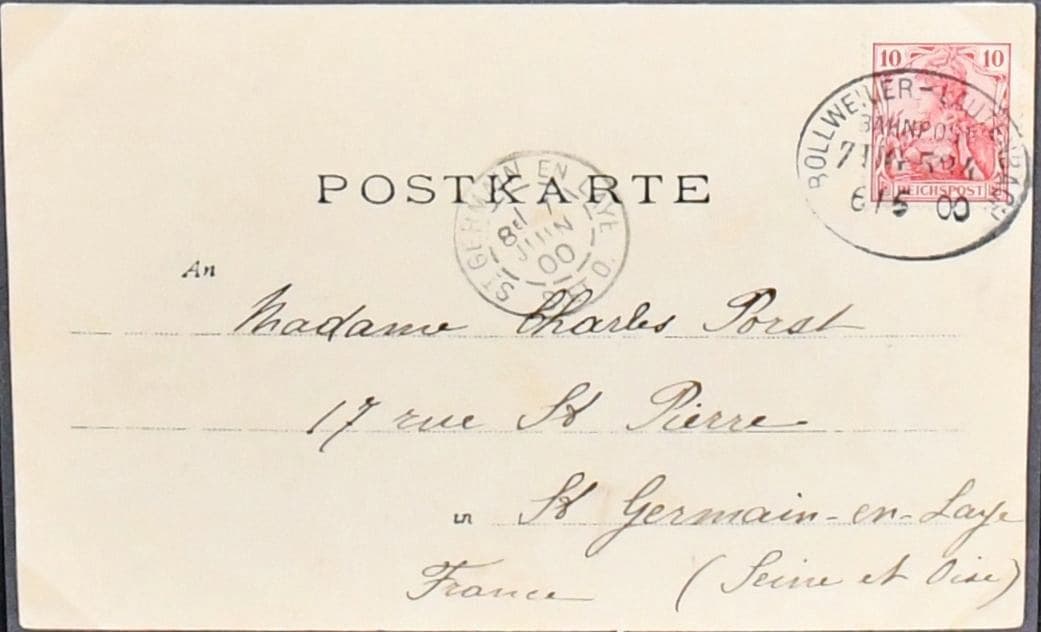 10 10
REICHSPOST
BOLLWEILER-LAUTENBACH
BAHNPOST
00
POSTKARTE
ST GERMAIN EN LAYE
8E 7
JUIN
00
An
Madame Charles Porst
17 rue St Pierre
in St Germain-en-Laye
France (Seine et Oise)